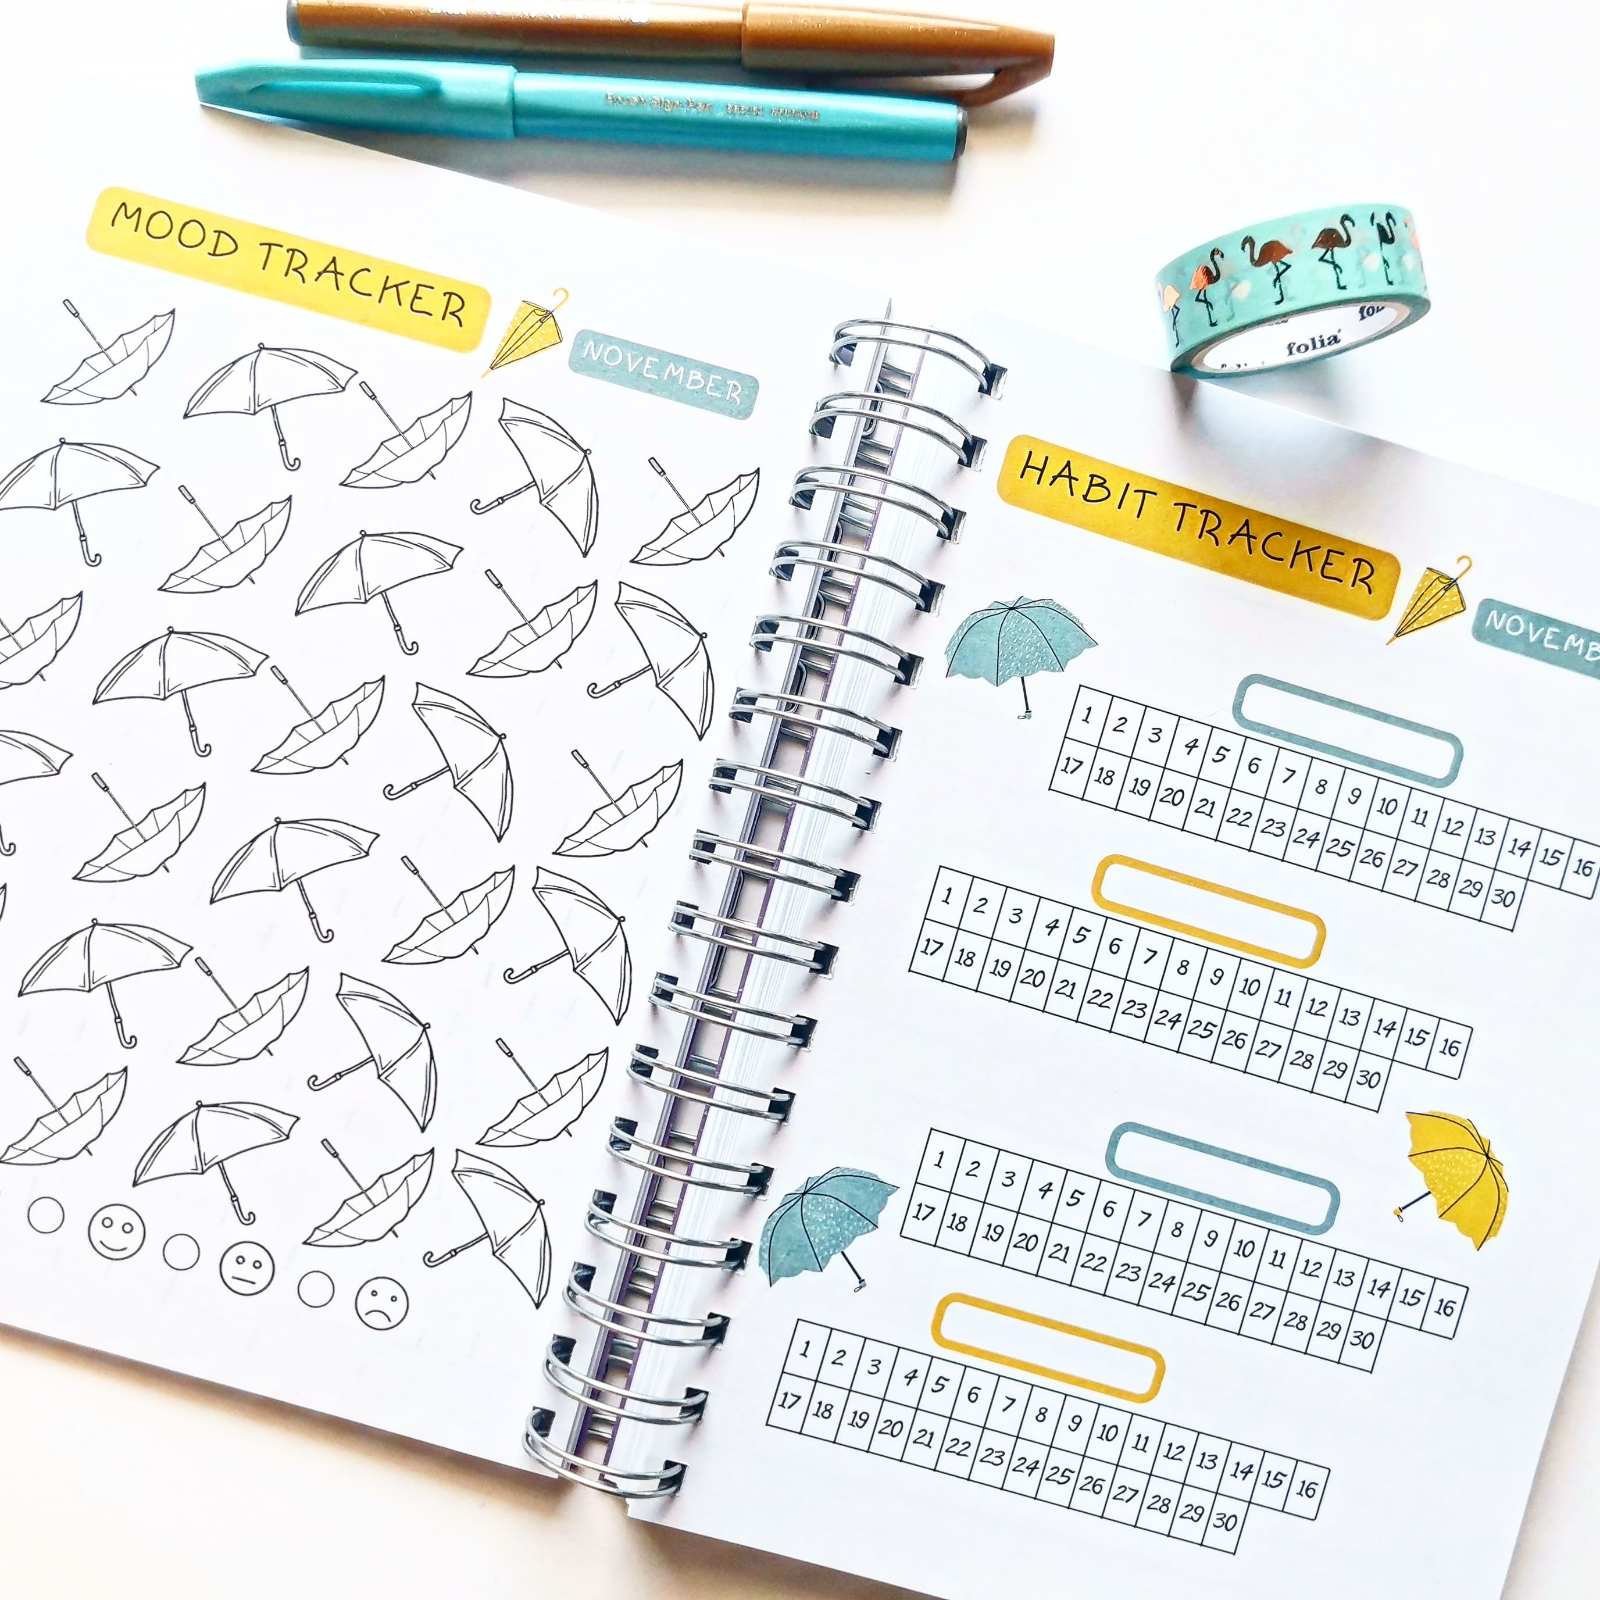 Brush Sign Pen
MOOD TRACKER
NOVEMBER
folia
HABIT TRACKER
NOVEMB
1 2 3 4 5 6 7 8 9 10 11 12 13 14 15 16
17 18 19 20 21 22 23 24 25 26 27 28 29 30
1 2 3 4 5 6 7 8 9 10 11 12 13 14 15 16
17 18 19 20 21 22 23 24 25 26 27 28 29 30
1 2 3 4 5 6 7 8 9 10 11 12 13 14 15 16
17 18 19 20 21 22 23 24 25 26 27 28 29 30
1 2 3 4 5 6 7 8 9 10 11 12 13 14 15 16
17 18 19 20 21 22 23 24 25 26 27 28 29 30